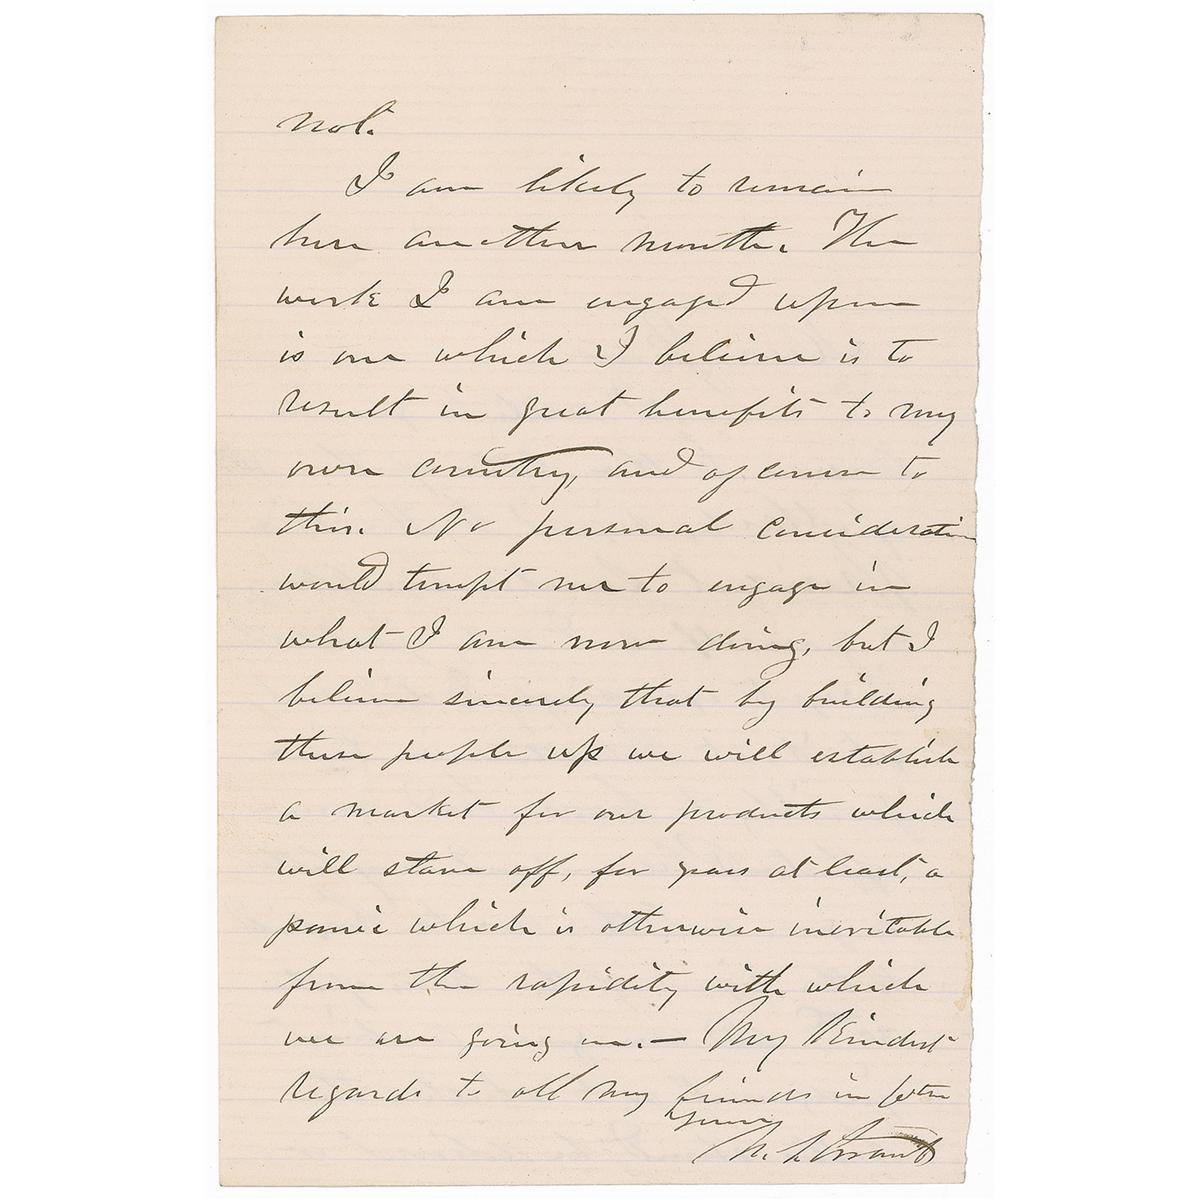 not.
I am likely to remain
here another month. The
work I am engaged upon
is one which I believe is to
result in great benefits to my
own country, and of course to
this. No personal consideration
would tempt me to engage in
what I am now doing, but I
believe sincerely that by building
these people up we will establish
a market for our products which
will stave off, for years at least, a
panic which is otherwise inevitable
from the rapidity with which
we are going on. — My Kindest
regards to all my friends in
Yours
U. S. Grant